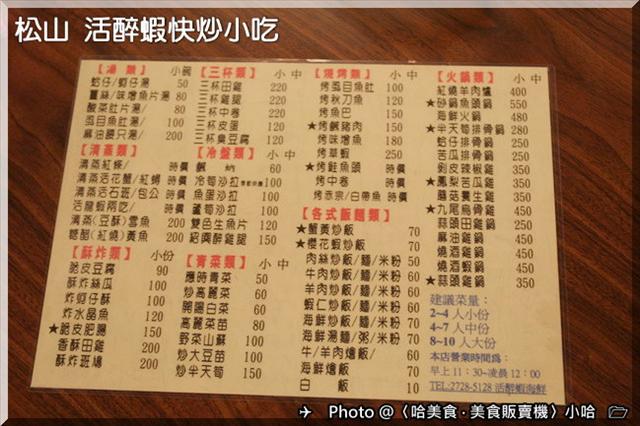 松山 活醉蝦快炒小吃
【湯類】 小碗
蛤仔/蚵仔湯 50
薑絲/味噌魚片湯 80
酸菜肚片湯/ 80
虱目魚肚湯/ 100
麻油腰只湯/ 200
【清蒸類】
清蒸紅條/ 時價
清蒸活花蟹/紅蟳 時價
清蒸活石班/包公 時價
活龍蝦兩吃/ 時價
清蒸(豆酥)雪魚 200
糖醋(紅燒)黃魚 200
【酥炸類】 小份
脆皮豆腐 90
酥炸絲瓜 100
炸蚵仔酥 100
炸水晶魚 100
★脆皮肥腸 150
香酥田雞 200
酥炸班鳩 200
【三杯類】 小 中
三杯田雞 220
三杯雞腿 220
三杯中卷 120
三杯皮蛋 120
三杯臭豆腐 120
【冷盤類】 小 中
60
冷筍沙拉 100
魚蛋沙拉 100
蘆筍沙拉 100
雙色生魚片 120
紹興醉雞腿 120
【青菜類】 小 中
應時青菜 50
炒高麗菜 60
開陽白菜 60
高麗菜苗 80
野菜山蘇 100
炒大豆苗 100
炒半天筍 150
【燒烤類】 小 中
烤虱目魚肚 100
烤秋刀魚 120
烤魚巴 150
★烤鹹豬肉 150
烤味噌魚 180
烤草蝦 200
★烤鮭魚頭 時價
烤中卷 時價
烤赤宗/白帶魚 時價
【各式飯麵類】
★蟹黃炒飯 70
★櫻花蝦炒飯 70
肉絲炒飯/麵/米粉 50
牛肉炒飯/麵/米粉 60
羊肉炒飯/麵/米粉 60
蝦仁炒飯/麵/米粉 60
海鮮炒飯/麵/米粉 70
海鮮湯麵/粥/米粉 70
牛/羊肉燴飯/ 60
海鮮燴飯/ 70
白 飯 10
【火鍋類】 小 中
紅燒羊肉爐 400
★砂鍋魚頭鍋 550
海鮮火鍋 480
★半天筍排骨鍋 280
蛤仔排骨鍋 350
苦瓜排骨鍋 350
剝皮辣椒雞 350
★鳳梨苦瓜雞 350
蘑菇養生雞 350
★九尾烏骨雞 450
蒜頭田雞鍋 450
麻油雞鍋 450
燒酒雞鍋 450
燒酒蝦鍋 450
★蒜頭雞鍋 350
建議菜量：
2~4 人小份
4~7 人中份
8~10 人大份
本店營業時間為：
早上 11：30~凌晨 12：00
TEL:2728-5128 活醉蝦海鮮
Photo @〈哈美食‧美食販賣機〉小哈